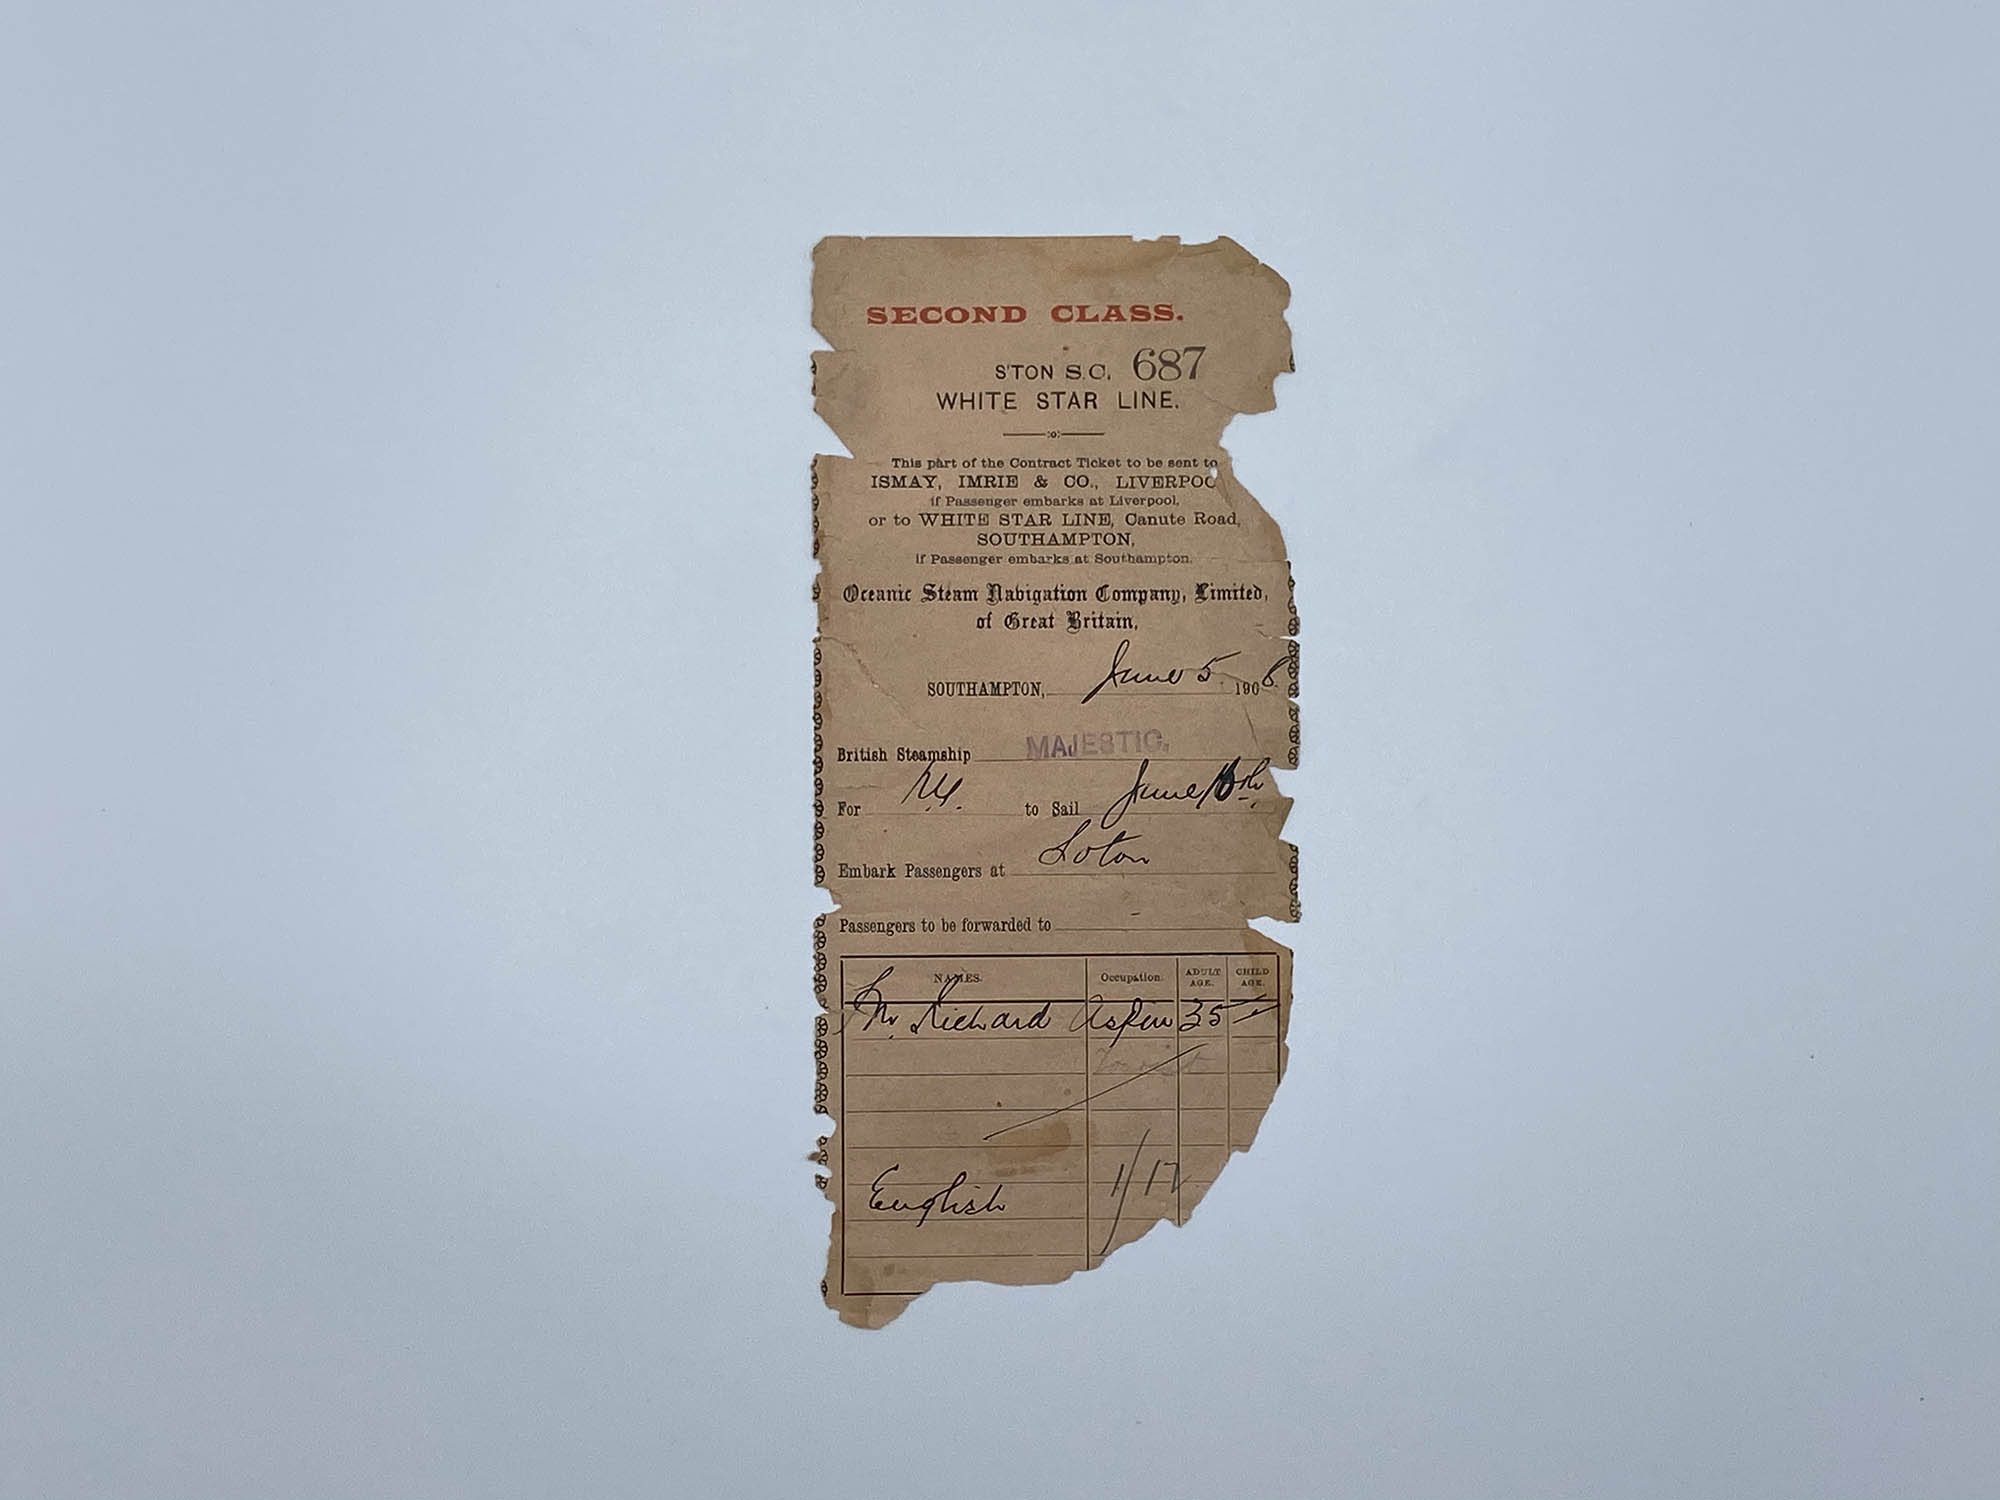 SECOND CLASS.
S'TON S.C. 687
WHITE STAR LINE.
This part of the Contract Ticket to be sent to
ISMAY, IMRIE & CO., LIVERPOO
if Passenger embarks at Liverpool,
or to WHITE STAR LINE, Canute Road,
SOUTHAMPTON,
if Passenger embarks at Southampton.
Oceanic Steam Navigation Company, Limited,
of Great Britain,
SOUTHAMPTON, June 5 1908
British Steamship MAJESTIC.
For N.Y. to Sail June 10th
Embark Passengers at Soton
Passengers to be forwarded to
NAMES. Occupation. ADULT AGE. CHILD AGE.
Mr. Richard Aspen 35
English 1/12